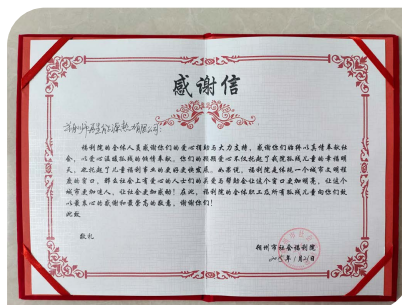 感谢信
有限公司：
福利院的全体人员感谢你们的爱心捐助与大力支持，感谢你们始终以真情奉献社
会，以爱心温暖孤残的倾情奉献。你们的拥拥爱心不仅托起了我院孤残儿童的幸福明
天，也托起了儿童福利事业的更好更快发展。如果说，福利院是体现一个城市文明程
度的窗口，那么社会上有爱心的人士们的关爱与帮助会让这个窗口更加明亮，让这个
城市更加迷人，让社会更加感动！在此，福利院的全体职工及所有孤残儿童向你们致
以最衷心的感谢和最崇高的敬意，谢谢你们！
此致
敬礼
市社会福利院
2015年1月21日